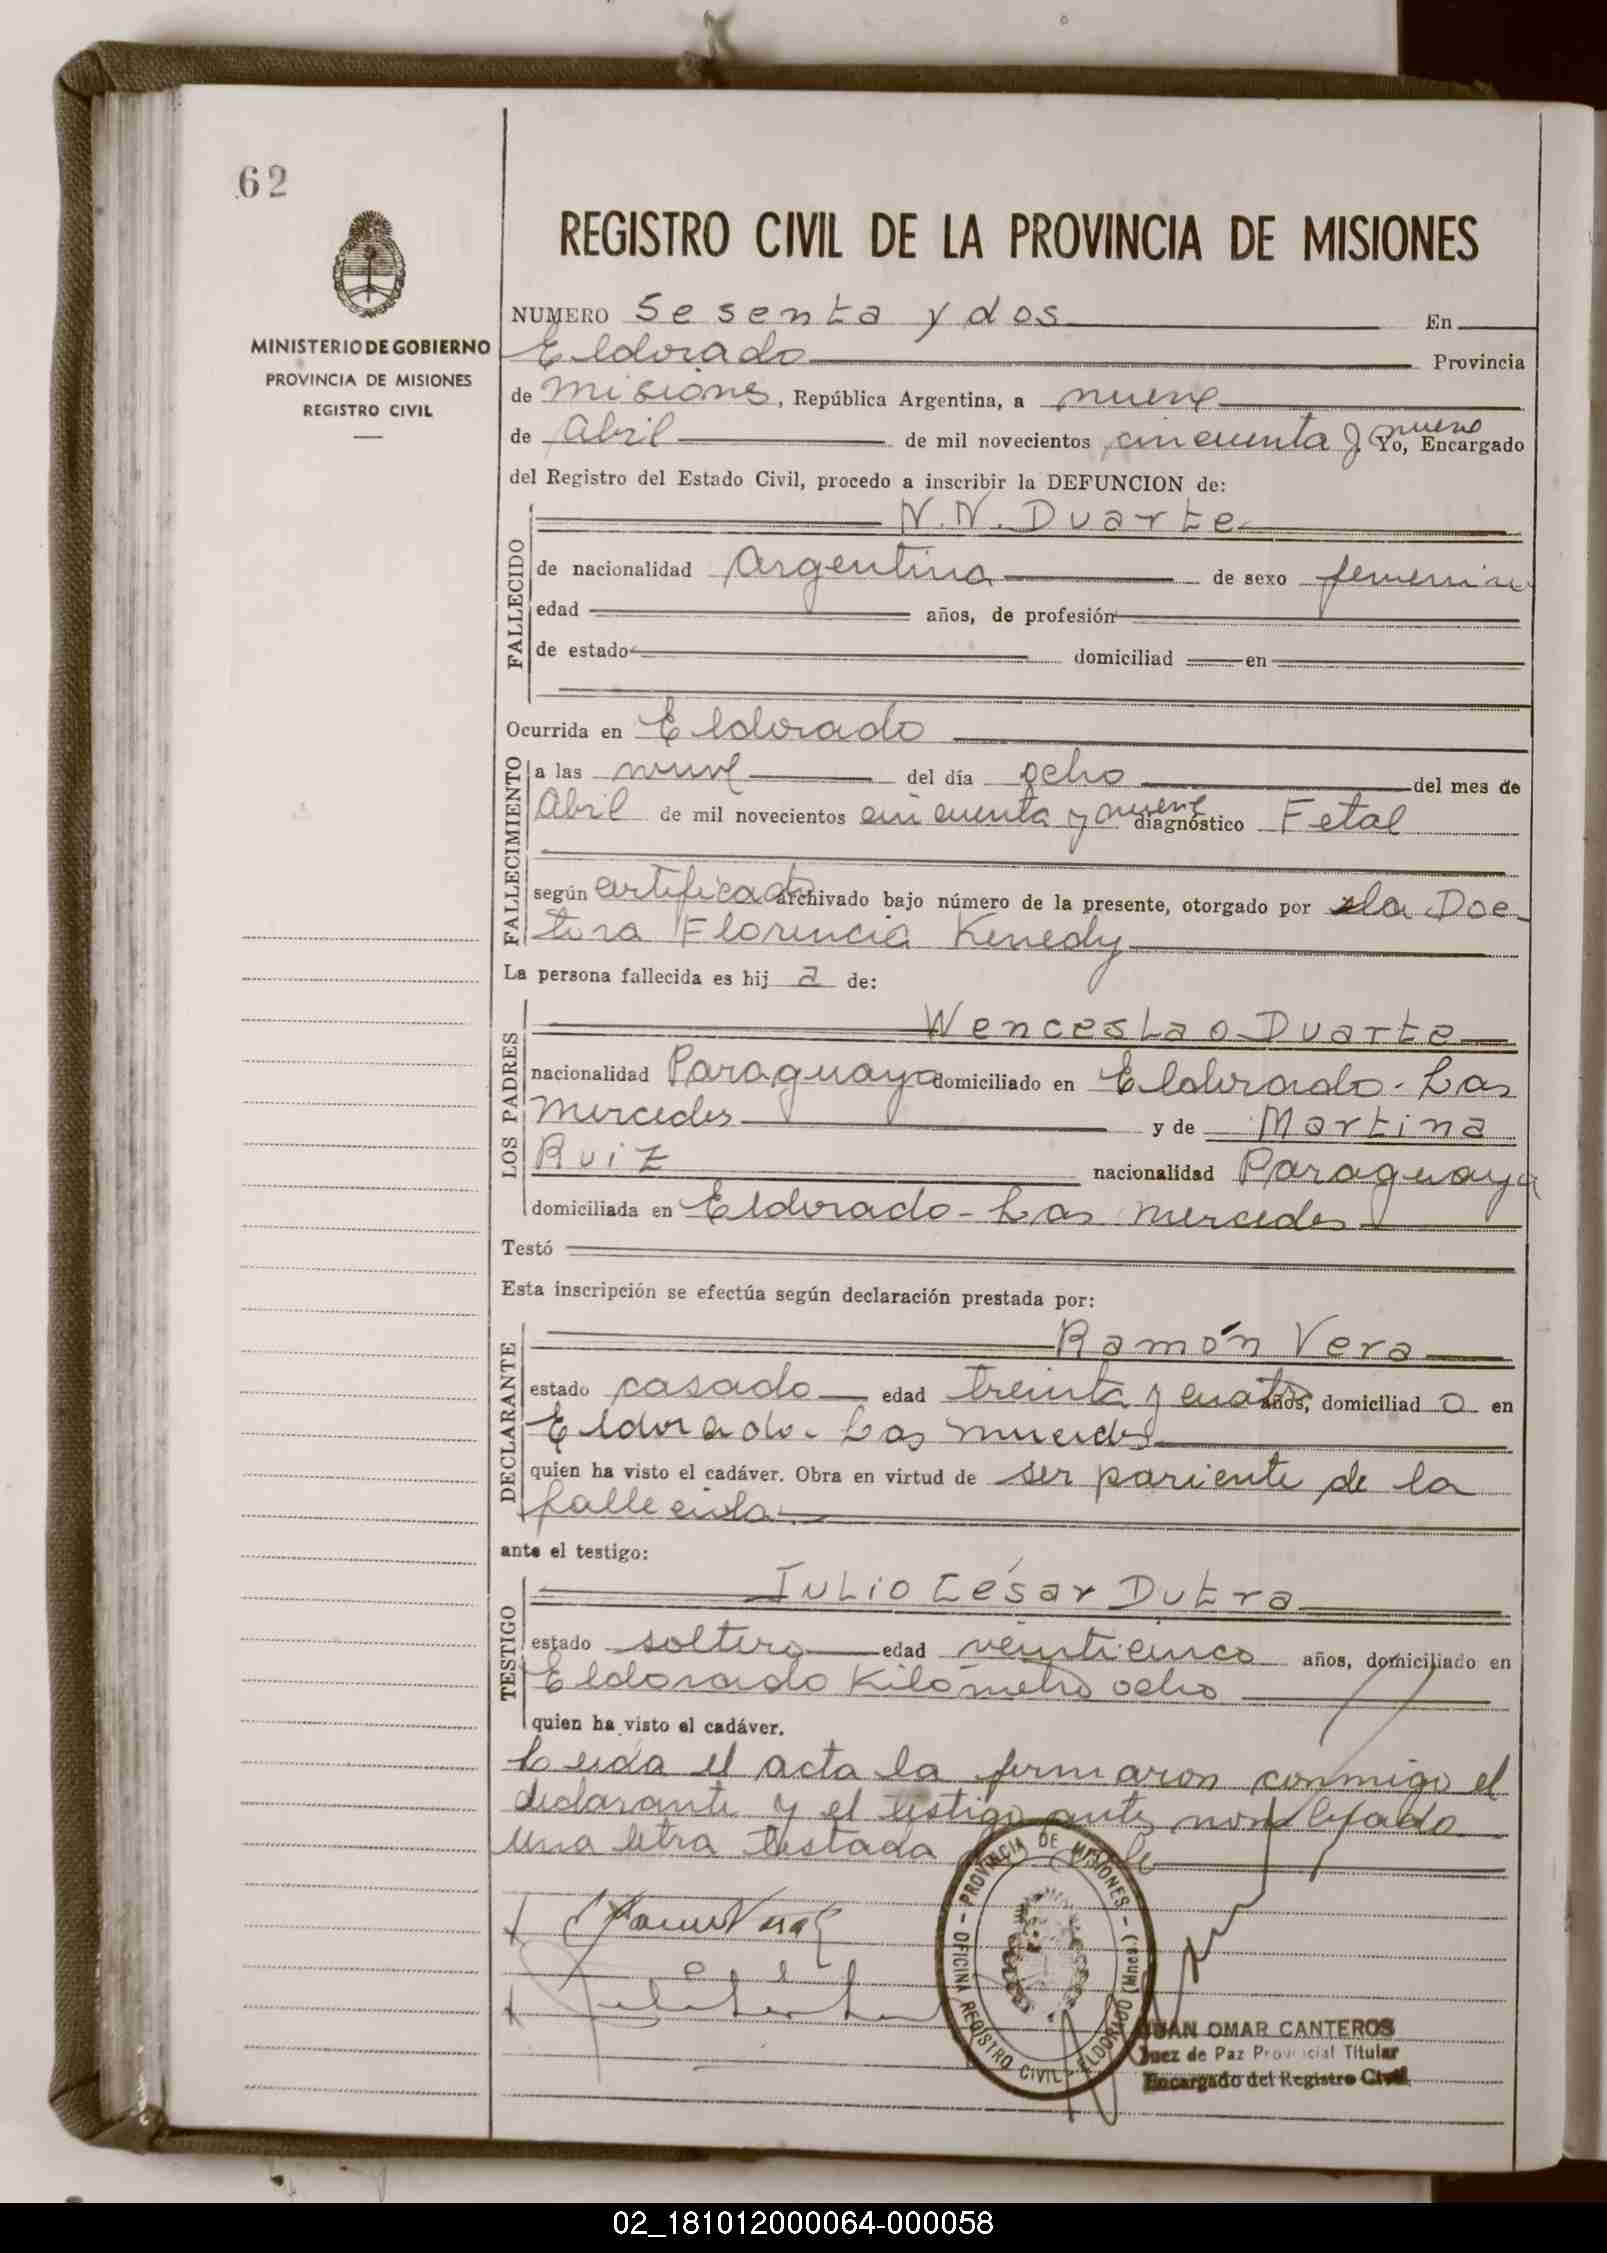 62
REGISTRO CIVIL DE LA PROVINCIA DE MISIONES
MINISTERIO DE GOBIERNO
PROVINCIA DE MISIONES
REGISTRO CIVIL
NUMERO Sesenta y dos En
Eldorado Provincia
de Misiones, República Argentina, a nueve
de Abril de mil novecientos cincuenta y nueve Yo, Encargado
del Registro del Estado Civil, procedo a inscribir la DEFUNCION de:
FALLECIDO
N.N. Duarte
de nacionalidad Argentina de sexo femenin
edad años, de profesión
de estado domiciliad en
Ocurrida en Eldorado
FALLECIMIENTO
a las nueve del día ocho del mes de
Abril de mil novecientos cincuenta y nueve diagnóstico Fetal
según certificado archivado bajo número de la presente, otorgado por la Doc-
tora Florencia Kenedy
La persona fallecida es hij a de:
LOS PADRES
Wenceslao Duarte
nacionalidad Paraguaya domiciliado en Eldorado - Las
Mercedes y de Martina
Ruiz nacionalidad Paraguaya
domiciliada en Eldorado - Las Mercedes
Testó
Esta inscripción se efectúa según declaración prestada por:
DECLARANTE
Ramón Vera
estado casado edad treinta y cuatro años, domiciliad o en
Eldorado - Las Mercedes
quien ha visto el cadáver. Obra en virtud de ser pariente de la
fallecida
ante el testigo:
TESTIGO
Julio César Dutra
estado soltero edad veinticinco años, domiciliado en
Eldorado Kilómetro ocho
quien ha visto el cadáver.
Leida el acta la firmaron conmigo el
declarante y el testigo antes nombrado
una letra testada
PROVINCIA DE MISIONES - (Mnes.)
OFICINA REGISTRO CIVIL - ELDORADO
JUAN OMAR CANTEROS
Juez de Paz Provincial Titular
Encargado del Registro Civil
02_181012000064-000058